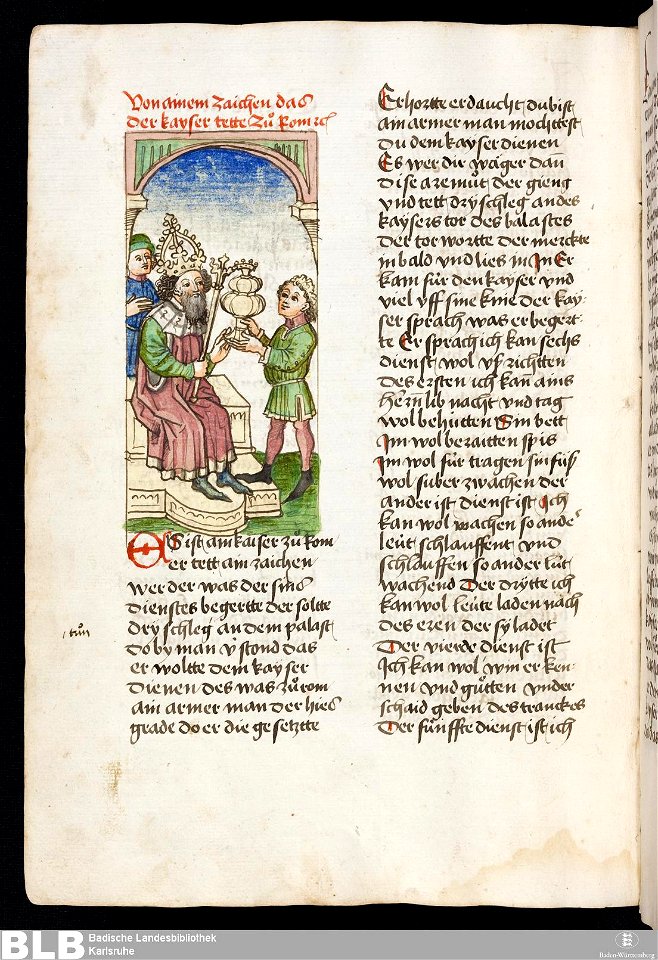 Von ainem zaichen das
der kayser tette zuͦ Rom
Es ist ain kaiser zuͦ Rom
er tett ain zaichen
wer der was der sins
dienstes begertte der soltte
dry schleg an dem palast
tuͦn
do by man v̈stond das
er woltte dem kayser
dienen des was zuͦ rom
ain armer man der hies
grade do er die gesetzte
Erhortte er daucht du bist
ain armer man mochttest
du dem kayser dienen
Es wer die wäger dan
dise aremuͦt der gieng
vnd tett dry schleg an des
kaysers tor des balastes
der tor wortte der merckte
in bald vnd lies in In Er
kam für den kayser vnd
viel vff sine knie der kay
ser sprach was er begert
te Er sprach ich kan sechs
dienst wol vs richtten
des ersten ich kan ains
herñ lib nacht vnd tag
wol behuͤtten Sin bett
Im wol beraitten spis
Im wol für tragen sin füs
wol suber zwachen der
ander ist dienst ist Ich
kan wol wachen so ander
leüt schlauffent vnd
schlauffen so ander lüt
wachend Der drytte ich
kan wol leüte laden nach
des eren der sy ladet
Der vierde dienst ist
Ich kan wol win er ken
nen vnd guͤtten vnder
schaid geben des tranckes
Der fünffte dienst ist ich
BLB
Badische Landesbibliothek
Karlsruhe
Baden-Württemberg